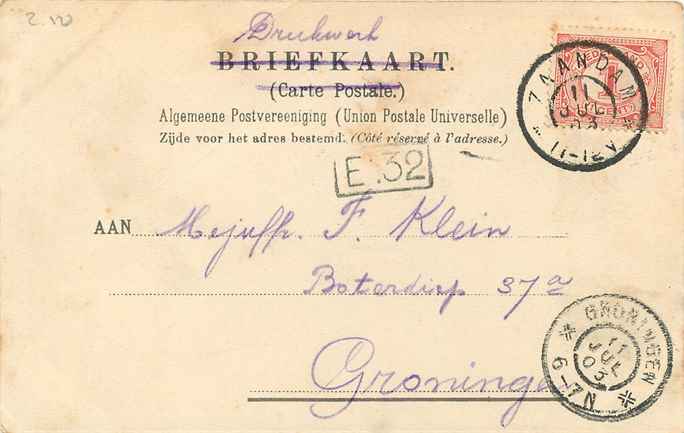 2.50
Drukwerk
BRIEFKAART.
(Carte Postale.)
Algemeene Postvereeniging (Union Postale Universelle)
Zijde voor het adres bestemd. (Côté réservé à l'adresse.)
E.32
ZAANDAM
11
JUL
03
11-12V
1
AAN Mejuffr. F. Klein
Boterdiep 37a
Groningen
GRONINGEN
11
JUL
03
6-7N